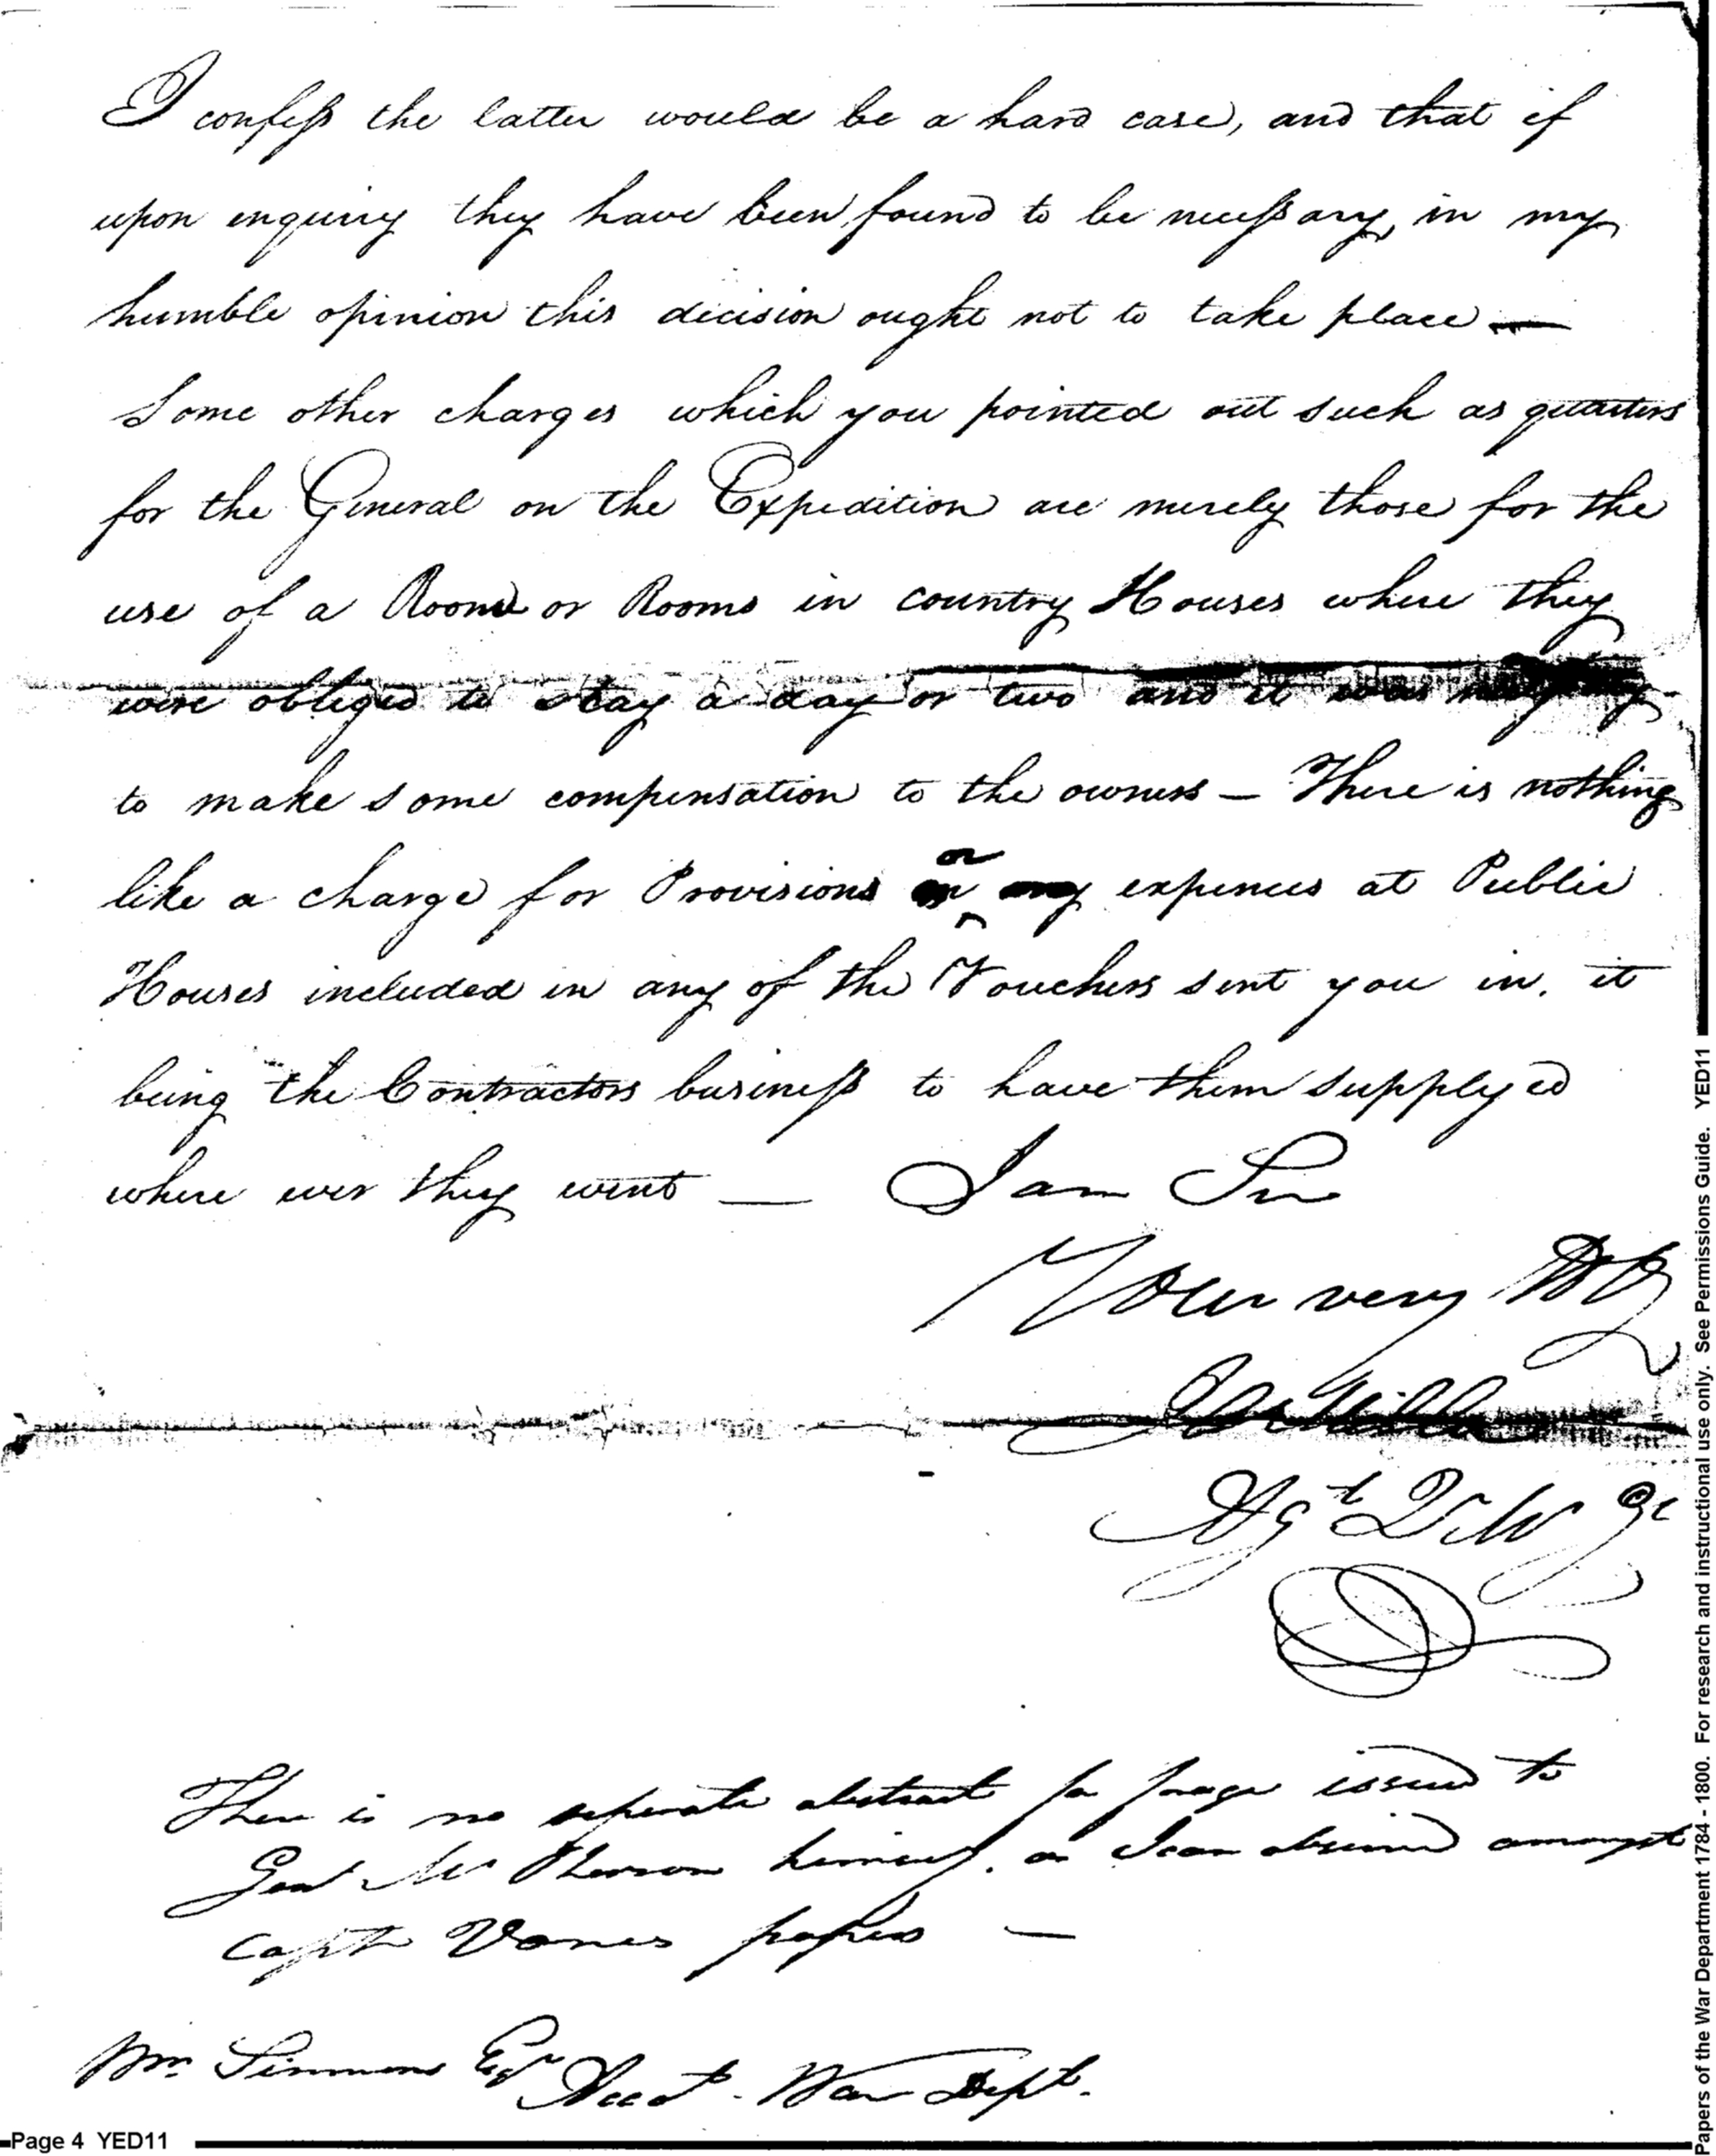 I confess the latter would be a hard case, and that if
upon enquiry they have been found to be necessary, in my
humble opinion this decision ought not to take place —
Some other charges which you pointed out such as quarters
for the General on the Expedition are merely those for the
use of a Room or Rooms in country Houses where they
were obliged to stay a day or two and it was
to make some compensation to the owners — There is nothing
like a charge for Provisions or any expences at Public
Houses included in any of the Vouchers sent you in. it
being the Contractors business to have them supplyed
where ever they went — I am Sir
Your very
Agt
There is no seperate abstract for forage issued to
Genl Mc Pherson himself, as I can discover amongst
Capt Vances papers —
Wm Simmons Esqr Acct. War Dept.
Page 4 YED11
Papers of the War Department 1784 - 1800. For research and instructional use only. See Permissions Guide. YED11